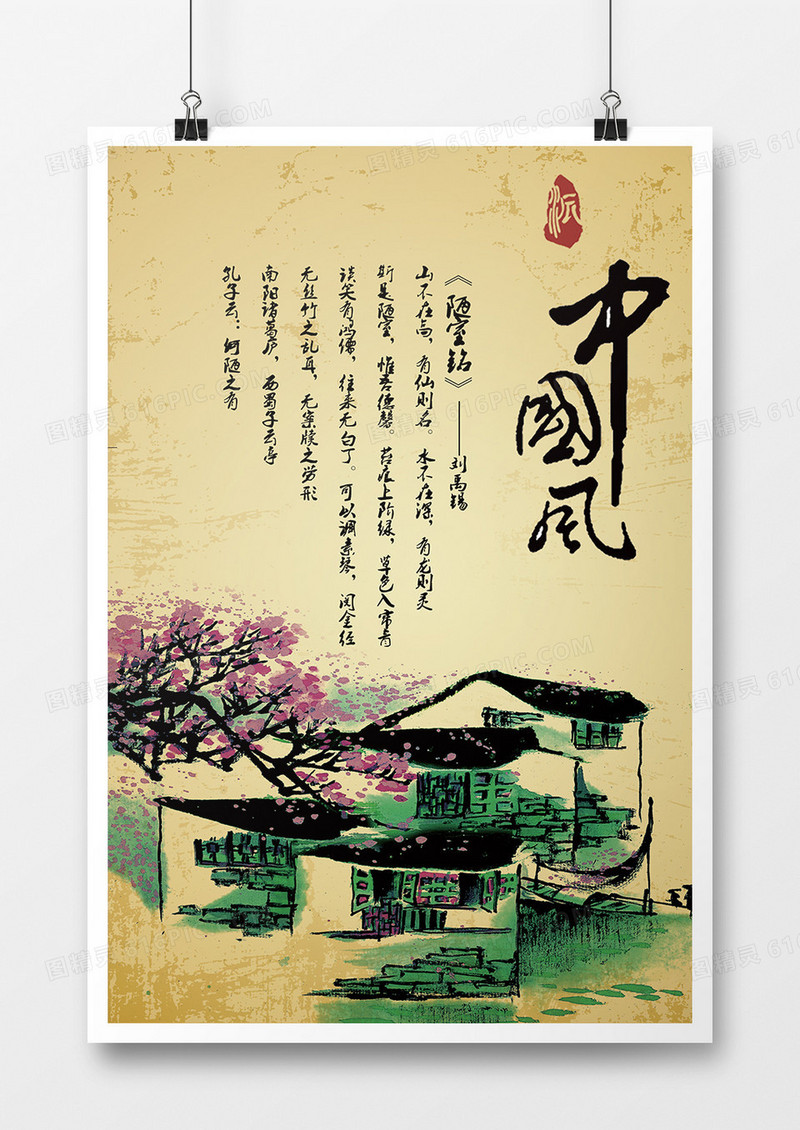 中國风
《陋室铭》——刘禹锡
山不在高，有仙则名。水不在深，有龙则灵
斯是陋室，惟吾德馨。苔痕上阶绿，草色入帘青
谈笑有鸿儒，往来无白丁。可以调素琴，阅金经
无丝竹之乱耳，无案牍之劳形
南阳诸葛庐，西蜀子云亭
孔子云：何陋之有
图精灵 616PIC.COM